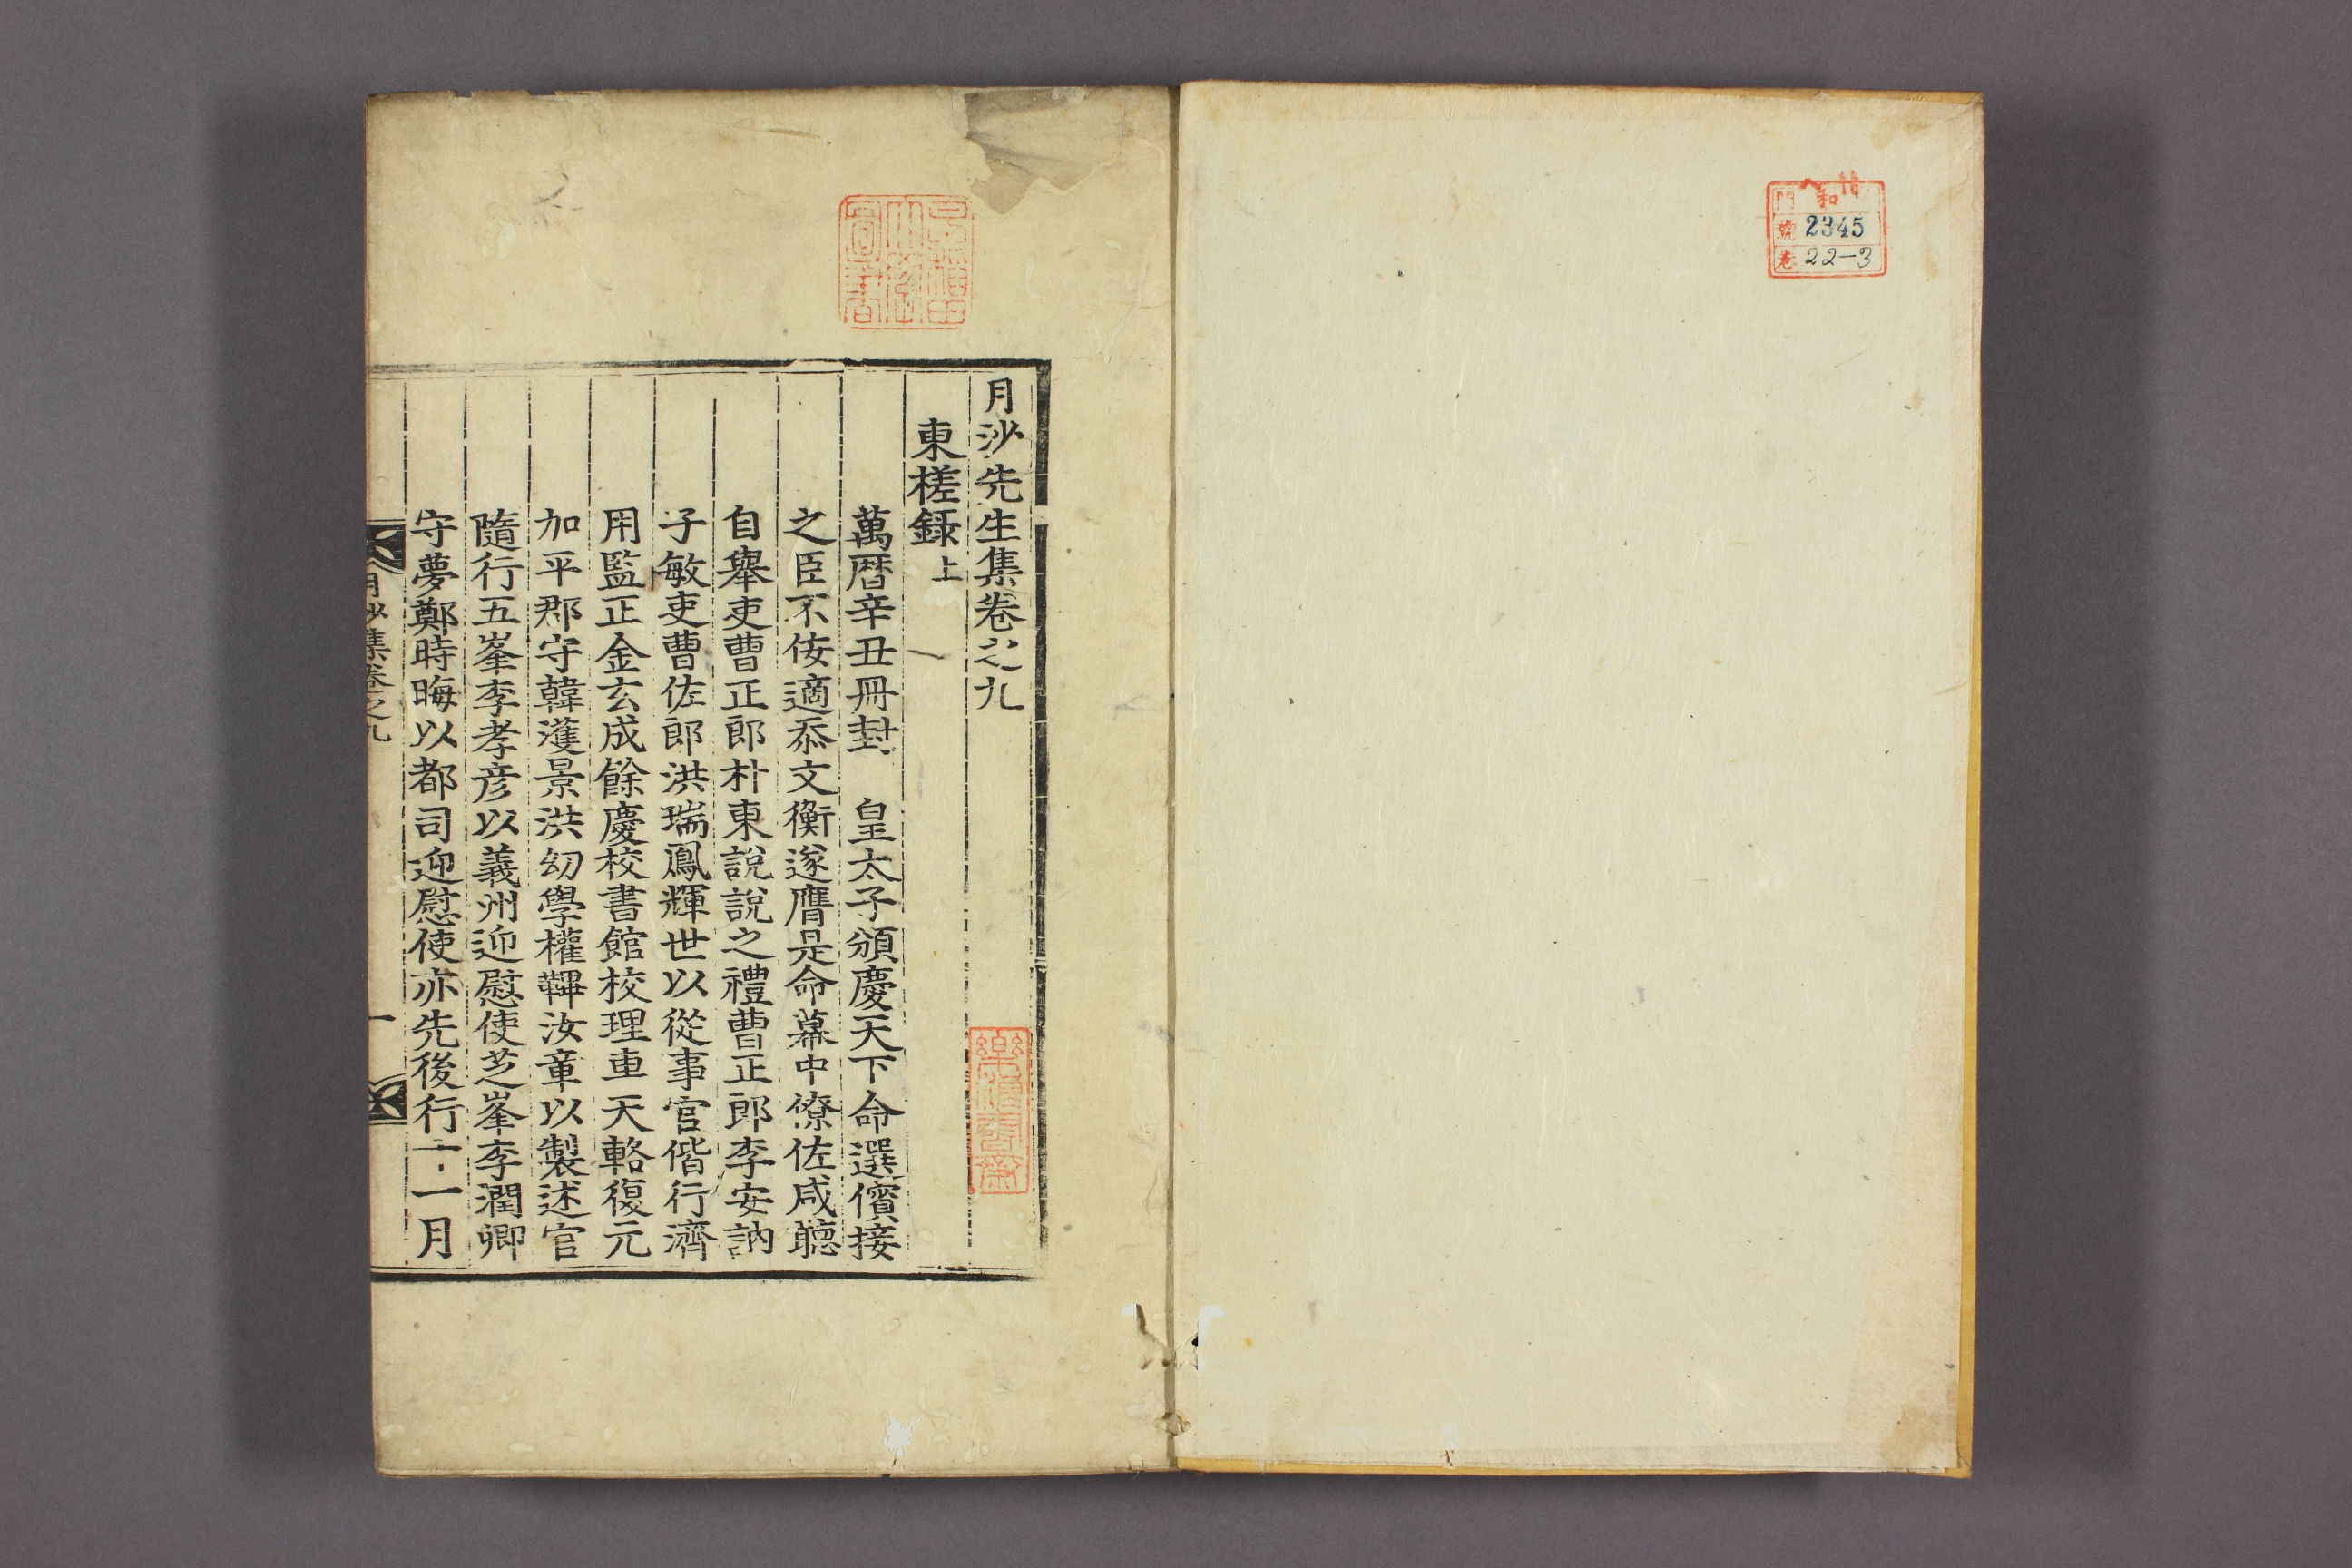 門 和
號 2345
卷 22-3
月沙先生集卷之九
東槎録上
萬曆辛丑冊封 皇太子頒慶天下命選儐接
之臣不侫適忝文衡遂膺是命幕中僚佐咸聽
自舉吏曹正郎朴東說說之禮曹正郎李安訥
子敏吏曹佐郎洪瑞鳳輝世以從事官偕行濟
用監正金玄成餘慶校書館校理車天輅復元
加平郡守韓濩景洪幼學權韠汝章以製述官
隨行五峯李孝彦以義州迎慰使芝峯李潤卿
守夢鄭時晦以都司迎慰使亦先後行十一月
月沙集卷之九 一